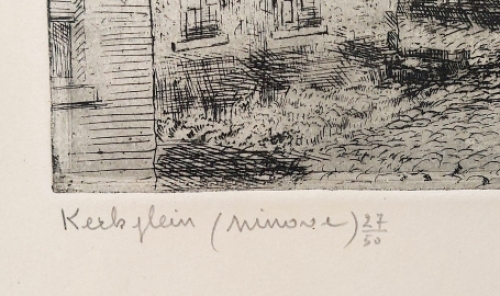 Kerkplein (Ninove) 27/50